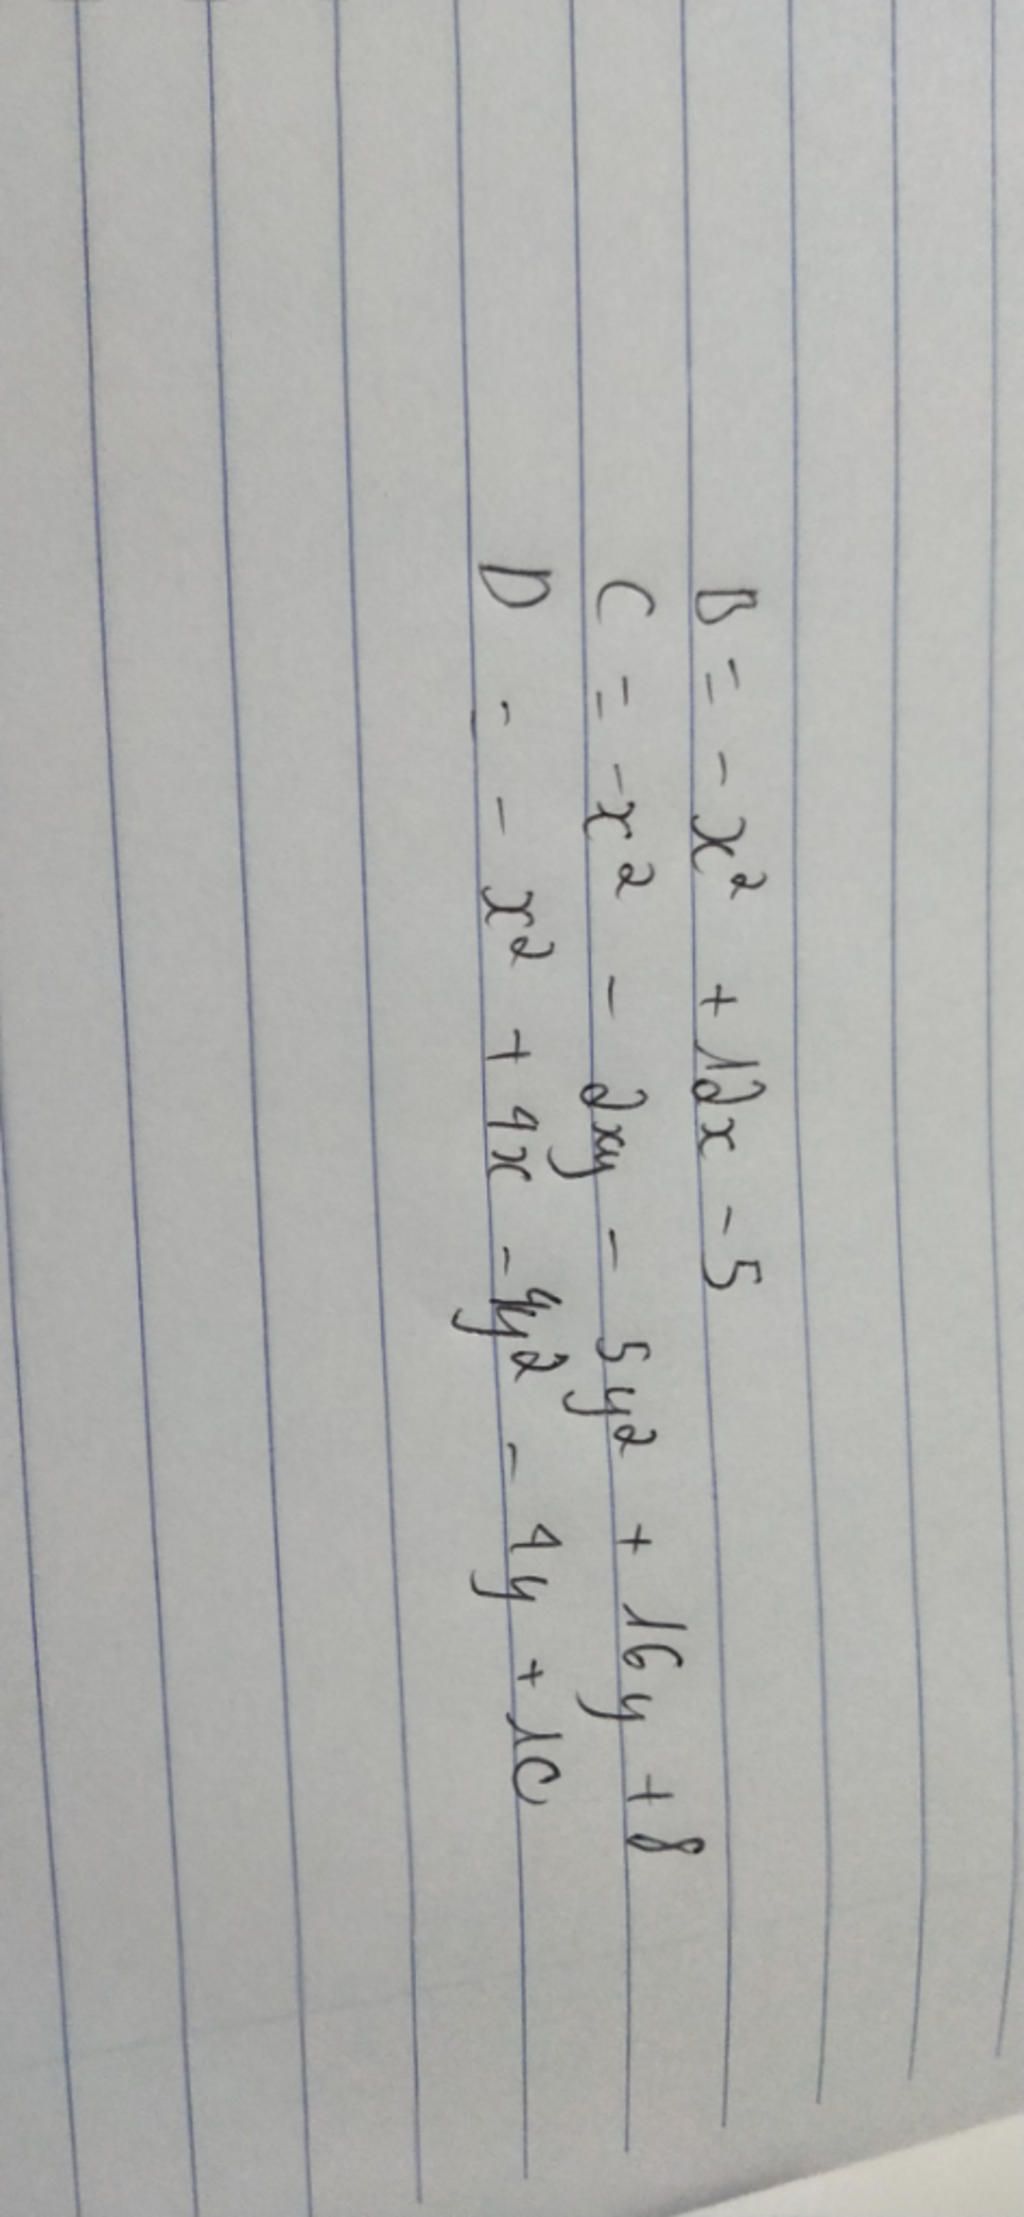 B = - x² + 12x - 5
C = -x² - 2xy - 5y² + 16y + 8
D - - x² + 4x - 4y² - 4y + 10